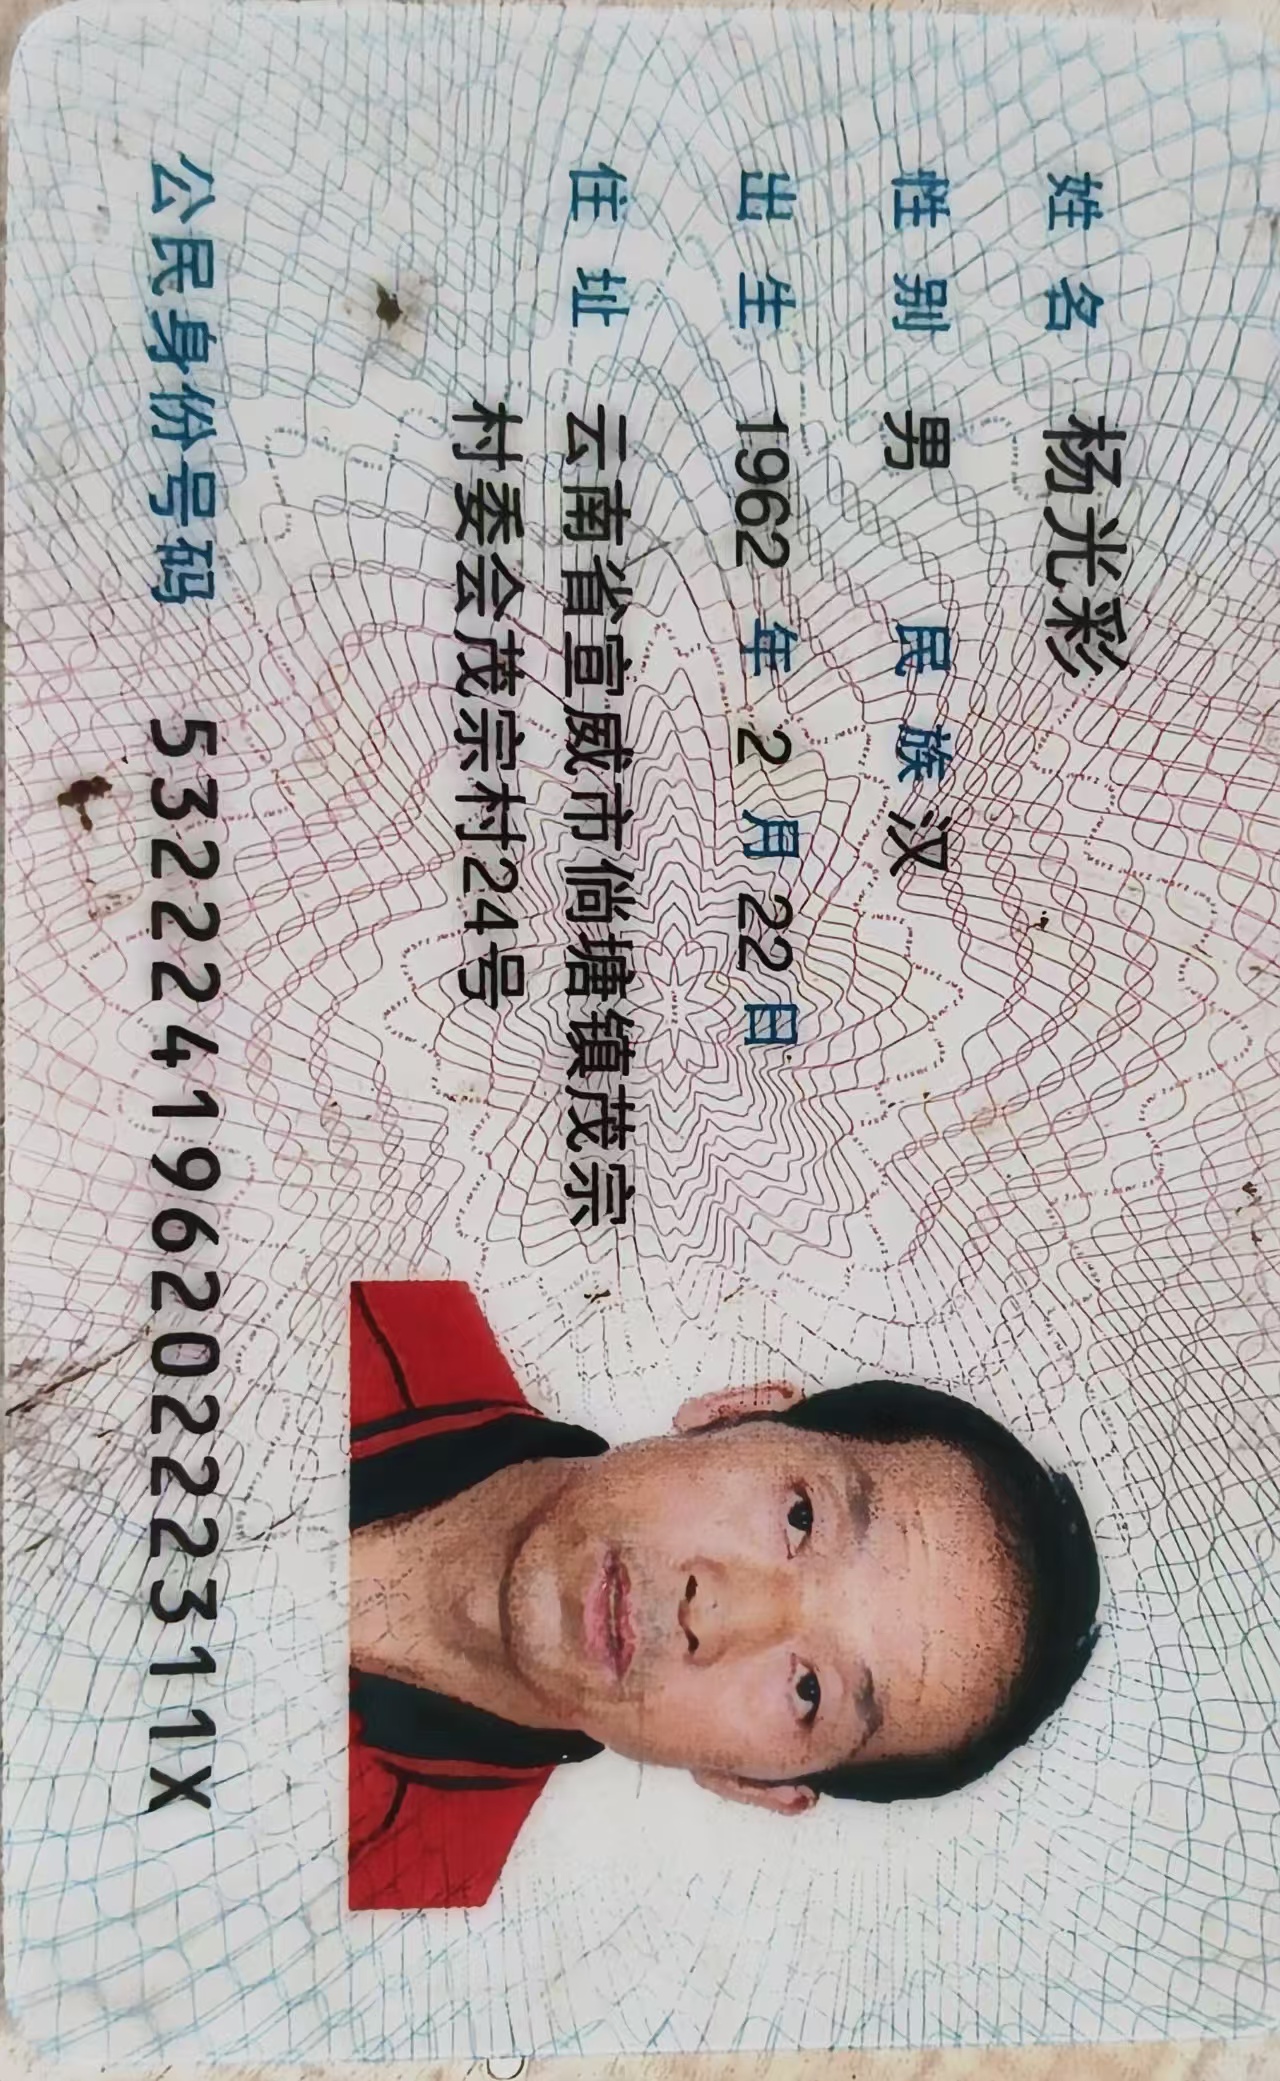 姓名 杨光彩
性别 男 民族 汉
出生 1962 年 2 月 22 日
住址 云南省宣威市倘塘镇茂宗
村委会茂宗村24号
公民身份号码 53222419620222311X